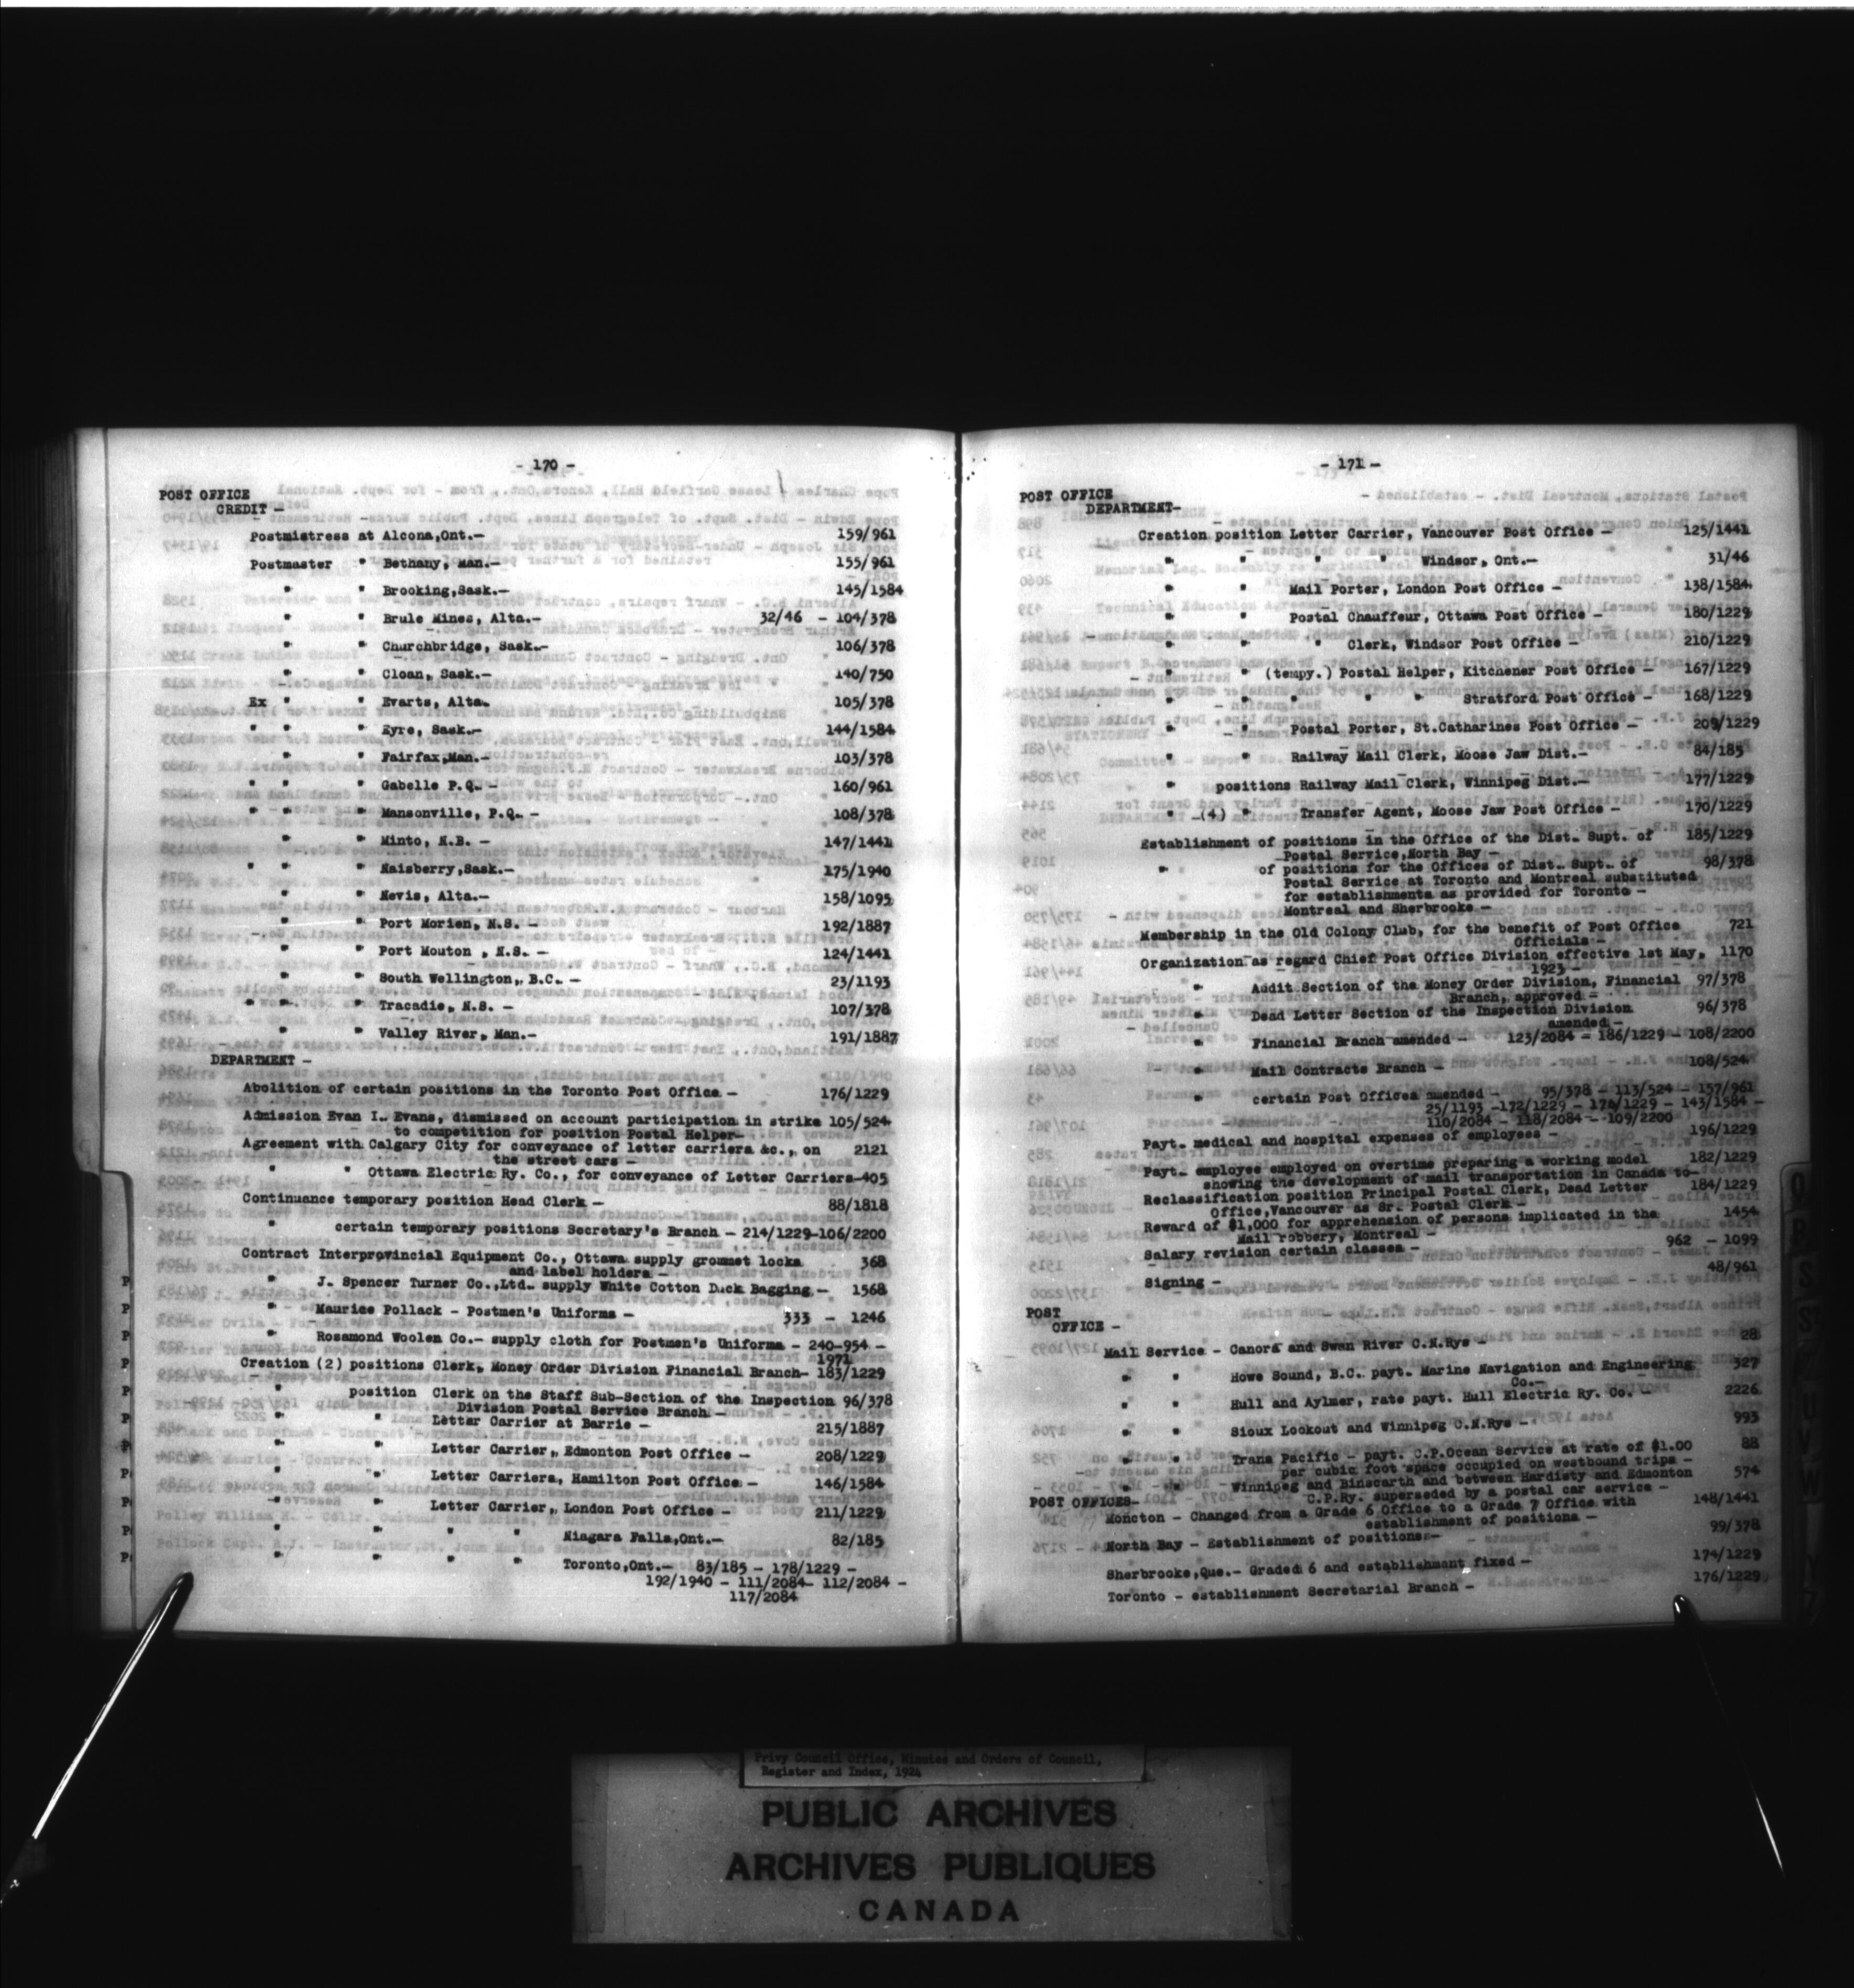 - 170 -
POST OFFICE
CREDIT -
Postmistress at Alcona,Ont.- 159/961
Postmaster " Bethany, Man.- 155/961
" " Brooking,Sask.- 145/1584
" " Brule Mines, Alta.- 32/46 - 104/378
" " Churchbridge, Sask.- 106/378
" " Cloan, Sask.- 140/750
Ex " " Evarts, Alta. 105/378
" " " Eyre, Sask.- 144/1584
" " Fairfax,Man.- 103/378
" " " Gabelle P.Q. - 160/961
" " " Mansonville, P.Q. - 108/378
" " Minto, N.B. - 147/1441
" " " Maisberry,Sask.- 175/1940
" " Nevis, Alta.- 158/1095
" " Port Morien, N.S. - 192/1887
" " Port Mouton , N.S. - 124/1441
" " South Wellington, B.C. - 23/1193
" " " Tracadie, N.S. - 107/378
" " Valley River, Man.- 191/1887
DEPARTMENT -
Abolition of certain positions in the Toronto Post Office - 176/1229
Admission Evan I. Evans, dismissed on account participation in strike 105/524
to competition for position Postal Helper-
Agreement with Calgary City for conveyance of letter carriers &c., on 2121
the street cars -
" " Ottawa Electric Ry. Co., for conveyance of Letter Carriers-405
Continuance temporary position Head Clerk - 88/1818
" certain temporary positions Secretary's Branch - 214/1229-106/2200
Contract Interprovincial Equipment Co., Ottawa supply grommet locks 368
and label holders -
" J. Spencer Turner Co.,Ltd. supply White Cotton Duck Bagging - 1568
" Maurice Pollack - Postmen's Uniforms - 333 - 1246
" Rosamond Woolen Co.- supply cloth for Postmen's Uniforms - 240-954 -
1971
Creation (2) positions Clerk, Money Order Division Financial Branch- 183/1229
" position Clerk on the Staff Sub-Section of the Inspection 96/378
Division Postal Service Branch -
" " Letter Carrier at Barrie - 215/1887
" " Letter Carrier, Edmonton Post Office - 208/1229
" " Letter Carriers, Hamilton Post Office - 146/1584
" " Letter Carrier, London Post Office - 211/1229
" " " " Niagara Falls,Ont.- 82/185
" " " " Toronto,Ont.- 83/185 - 178/1229 -
192/1940 - 111/2084- 112/2084 -
117/2084
- 171 -
POST OFFICE
DEPARTMENT-
Creation position Letter Carrier, Vancouver Post Office - 125/1441
" " " " Windsor, Ont.- 31/46
" " Mail Porter, London Post Office - 138/1584
" " Postal Chauffeur, Ottawa Post Office - 180/1229
" " " Clerk, Windsor Post Office - 210/1229
" " (tempy.) Postal Helper, Kitchener Post Office - 167/1229
" " " " Stratford Post Office - 168/1229
" " Postal Porter, St.Catharines Post Office - 209/1229
" " Railway Mail Clerk, Moose Jaw Dist.- 84/185
" positions Railway Mail Clerk, Winnipeg Dist.- 177/1229
" (4) " Transfer Agent, Moose Jaw Post Office - 170/1229
Establishment of positions in the Office of the Dist. Supt. of 185/1229
Postal Service,North Bay -
" of positions for the Offices of Dist. Supt. of 98/378
Postal Service at Toronto and Montreal substituted
for establishments as provided for Toronto -
Montreal and Sherbrooke -
Membership in the Old Colony Club, for the benefit of Post Office 721
Officials -
Organization as regard Chief Post Office Division effective 1st May, 1170
1923 -
" Audit Section of the Money Order Division, Financial 97/378
Branch, approved -
" Dead Letter Section of the Inspection Division 96/378
amended -
" Financial Branch amended - 123/2084 - 186/1229 - 108/2200
" Mail Contracts Branch - 108/524
" certain Post Offices amended - 95/378 - 113/524 - 157/961
25/1193 -172/1229 - 179/1229 - 143/1584 -
110/2084 - 118/2084 - 109/2200
Payt. medical and hospital expenses of employees - 196/1229
Payt. employee employed on overtime preparing a working model 182/1229
showing the development of mail transportation in Canada to-
Reclassification position Principal Postal Clerk, Dead Letter 184/1229
Office,Vancouver as Sr. Postal Clerk -
Reward of $1,000 for apprehension of persons implicated in the 1454
Mail robbery, Montreal -
Salary revision certain classes - 962 - 1099
Signing - 48/961
POST
OFFICE -
Mail Service - Canora and Swan River C.N.Rys - 28
" " Howe Sound, B.C. payt. Marine Navigation and Engineering 327
Co.-
" " Hull and Aylmer, rate payt. Hull Electric Ry. Co. - 2226
" " Sioux Lookout and Winnipeg C.N.Rys - 993
" " Trans Pacific - payt. C.P.Ocean Service at rate of $1.00 88
per cubic foot space occupied on westbound trips -
" " Winnipeg and Binscarth and between Hardisty and Edmonton 574
C.P.Ry. superseded by a postal car service -
POST OFFICES-
Moncton - Changed from a Grade 6 Office to a Grade 7 Office with 148/1441
establishment of positions -
North Bay - Establishment of positions - 99/378
Sherbrooke,Que.- Graded 6 and establishment fixed - 174/1229
Toronto - establishment Secretarial Branch - 176/1229
Privy Council Office, Minutes and Orders of Council,
Register and Index, 1924
PUBLIC ARCHIVES
ARCHIVES PUBLIQUES
CANADA